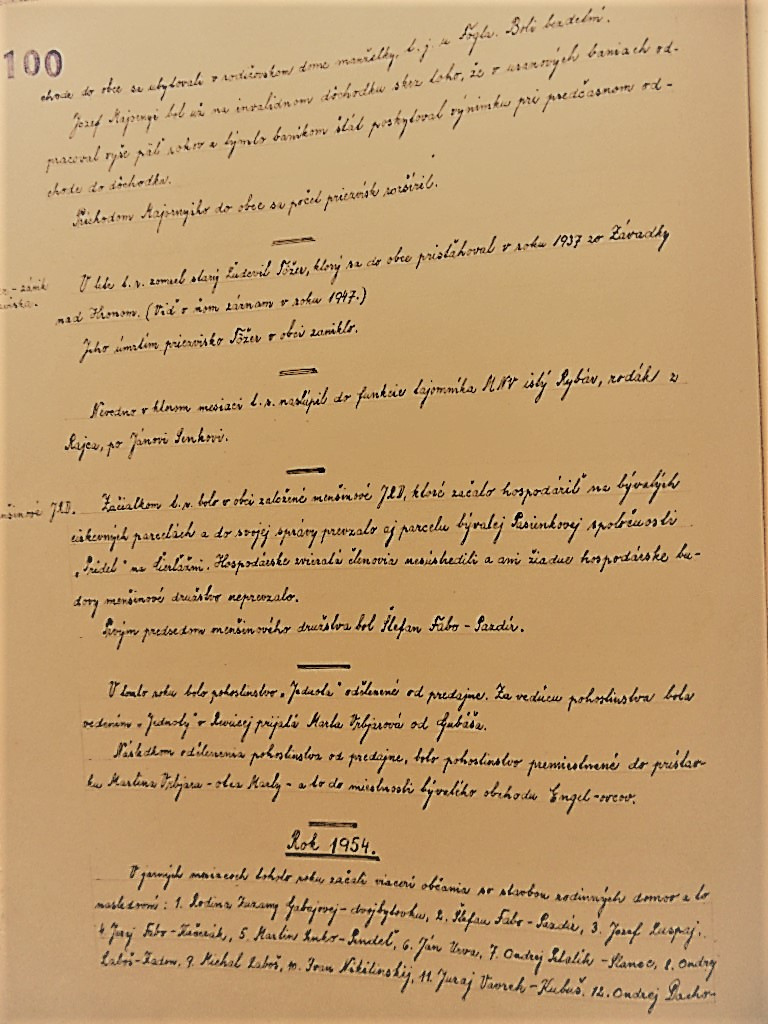 100
chode do obce sa ubytovali v rodičovskom dome manželky, t. j. u Fógla. Boli bezdetní.
Jozef Majornyi bol už na invalidnom dôchodku skrz toho, že v uránových baniach od-
pracoval vyše päť rokov a týmto baníkom štát poskytoval výnimku pri predčasnom od-
chode do dôchodka.
Príchodom Majornyiho do obce sa počet priezvísk rozšíril.
V lete t. r. zomrel starý Ľudevit Tőžer, ktorý sa do obce prisťahoval v roku 1937 zo Závadky
zánik
nad Hronom. (Viď o ňom záznam v roku 1947.)
Jeho úmrtím priezvisko Tőžer v obci zaniklo.
Nevedno v ktorom mesiaci t. r. nastúpil do funkcie tajomníka MNV istý Rybár, rodák z
Rajca, po Jánovi Senkovi.
menšinové JRD.
Začiatkom t. r. bolo v obci založené menšinové JRD, ktoré začalo hospodáriť na bývalých
cirkevných parcelách a do svojej správy prevzalo aj parcelu bývalej Pasienkovej spoločnosti
„Prídel“ na. Hospodárske zvieratá členovia nesústredili a ani žiadne hospodárske bu-
dovy menšinové družstvo neprevzalo.
Prvým predsedom menšinového družstva bol Štefan Fabo - Pazdír.
V tomto roku bolo pohostinstvo „Jednota“ oddelené od predajne. Za vedúcu pohostinstva bola
vedením „Jednoty“ v Revúcej prijatá Marta Vrbjarová od Gubáša.
Následkom oddelenia pohostinstva od predajne, bolo pohostinstvo premiestnené do prístav-
ku Martina Vrbjara - otca Marty - a to do miestnosti bývalého obchodu Engel-ovcov.
Rok 1954.
V jarných mesiacoch tohoto roku začali viacerí občania so stavbou rodinných domov a to
nasledovní: 1. Rodina Zuzany Gabajovej - dvojbytovku, 2. Štefan Fabo - Pazdír, 3. Jozef Laspaj,
4. Juraj Fabo -, 5. Martin Senko -, 6. Ján Urva, 7. Ondrej Petalík - Slanec, 8. Ondrej
Laboš -, 9. Michal Laboš, 10. Ivan Nikitinskij, 11. Juraj Vavrek - Kubuš, 12. Ondrej Dacho-